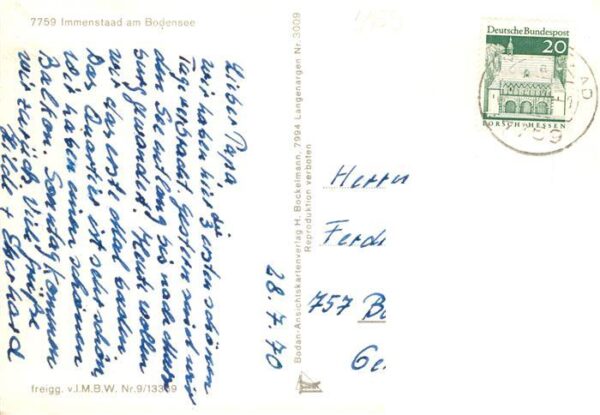 7759 Immenstaad am Bodensee
Lieber Papa, die
wir haben hier 3 ersten schönen
Tage verbracht, gestern sind wir
den See entlang bis nach
gewandert. Heute wollen
wir das erste Mal baden.
Das Quartier ist sehr schön,
wir haben einen schönen
Balkon. Sonntag kommen
wir zurück. Viel Grüße
Hilde + Eberhard
28.7.70
freigg. v.I.M.B.W. Nr.9/13339
Bodan-Ansichtskartenverlag H. Bockelmann, 7994 Langenargen Nr. 3009
Reproduktion verboten
Deutsche Bundespost
20
LORSCH · HESSEN
7759
Herrn
Ferd
757 Ba
Ge